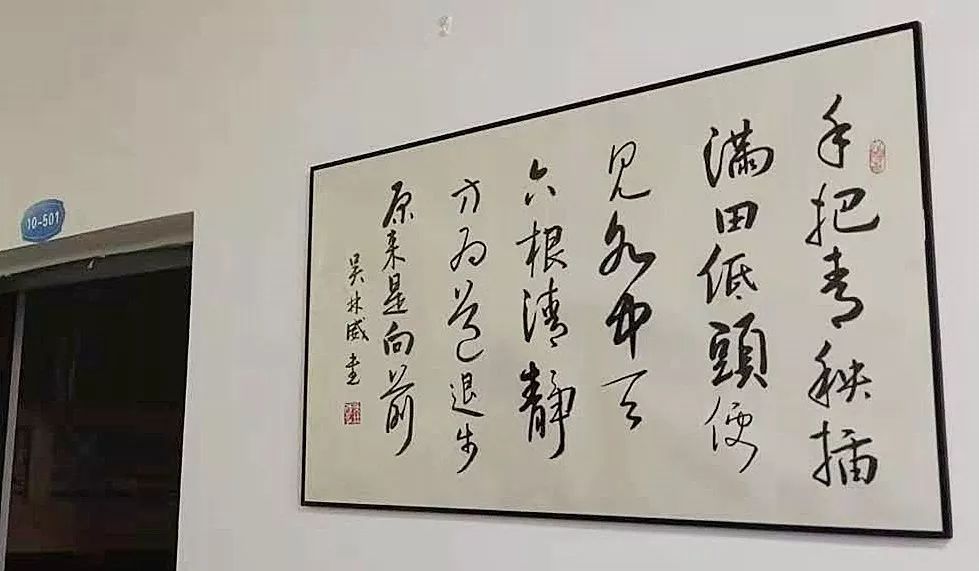 手把青秧插
满田低頭便
见水中天
六根清静
方为道退步
原来是向前
吴林威书
10-501